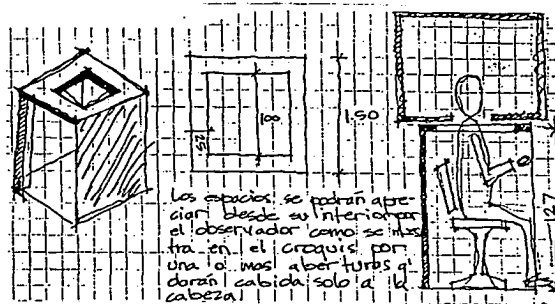 100
1.50
.25
1.27
Los espacios se podrán apre-
ciar desde su interior por
el observador como se mues
tra en el croquis por
una o mas aberturas q'
darán cabida solo a la
cabeza